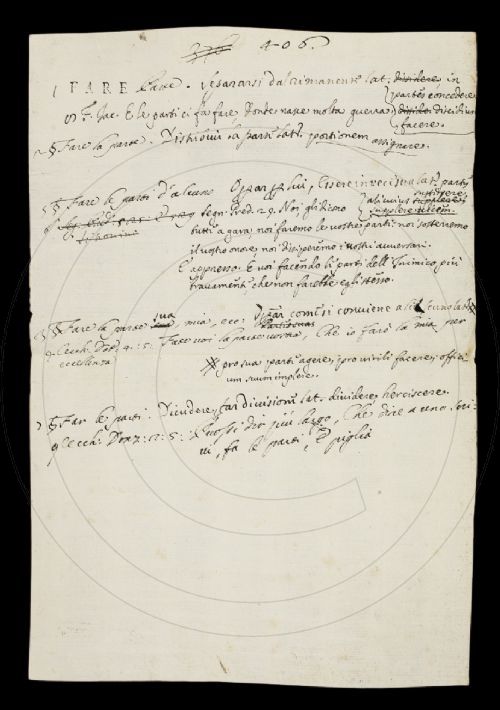 406.
1 FARE Parte. Separarsi dal rimanente lat. dividere in
partes concedere
Fr. Jac. E le parti ci fa fare Donde nasce molta guerra dissidium
facere.
2 § Fare la parte. Distribuir la parte lat. portionem
assignare.
3 § Fare le parti d'alcuno Operar per lui, Essere in vece sua lat. partes
alicuius
Segn. Pred. 29. Noi gli dicono
tutti a gara, noi faremo le vostre parti: noi sosterremo
il vostro onore, noi disiperemo i vostri avversari.
E appresso. E voi facendo le parti dell'Inimico, più
bravamente che non farebbe egli stesso.
§ Fare la parte sua, mia, ecc. Oprar come si conviene a se lat.
Cecch. Fate voi la parte vostra, Che io farò la mia per
eccellenza
pro sua parte agere, pro virili facere, offici
um suum implere.
§ Far le parti. Dividere, far divisione lat. dividere, herciscere.
Cecch. Donz: 2: 5: Puossi dir più largo, Che dire a uno: Scri
vi, fa le parti, e piglia